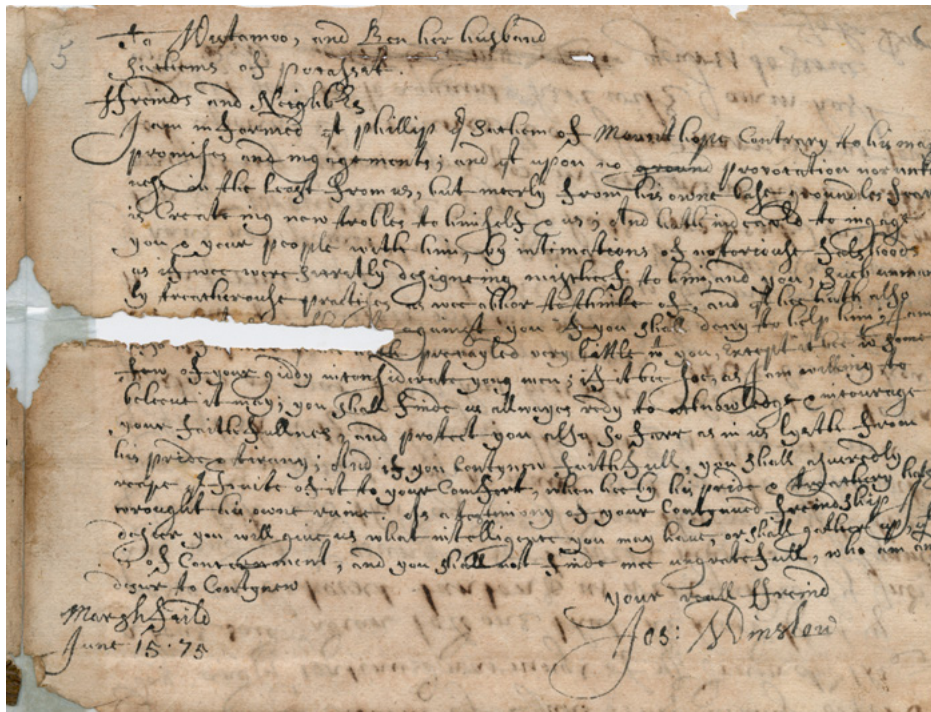 5
To Wutamoo, and Ben her husband
Sachems of pocasset.
ffreinds and Neighb^rs
I am informed y^t phillip y^e Sachem of Mount hope Contrary to his many
promises and ingagements; and y^t upon no ground provocation nor unkind
nese in the least from us, but meerly from his owne base groundles feare
is Creating new trobles to himselfe & us; And hath indeavored to ingage
you & your people with him, by intimations of notoriouse falshoods
as if wee were secritly designeing mischeefe to him, and you, Such unman
ly treatherouse practises as wee abhor to thinke of, and y^t hee hath also
against you if you shall deny to help him; I am
prevayled very little w^th you, Except it bee w^th some
few of your giddy inconsiderate yong men; if it bee soe, as I am willing to
beleeve it may, you shall finde us allwayes redy to acknowledge & incourage
your faithfullnes, and protect you also so farr as in us lyeth from
his pride & tirany; And if you Contynew faithfull, you shall assuredly
reape y^e fruite of it to your Comfort, when hee by his pride & treathery hath
wrought his owne ruine. As a testimony of your Contynued freindship I
desier you will give us what intelligence you may have, or shall gather up, y^t
is of Concernment, and you shall not finde mee ungratefull, who am and
desire to Contynew
your reall ffreind
Marshfeild
Jos: Winslow
June 15. 75